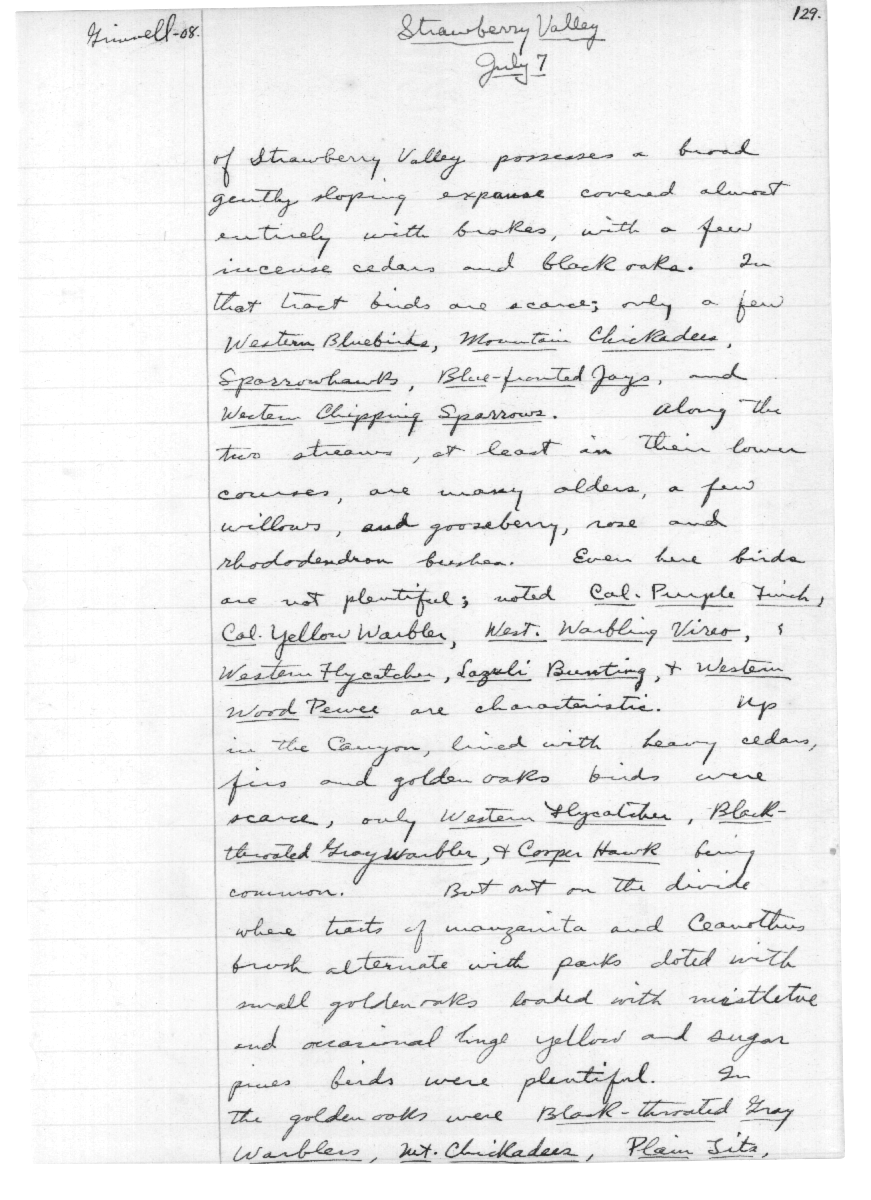 Grinnell-08.
Strawberry Valley
129.
July 7
of Strawberry Valley possesses a broad
gently sloping expanse covered almost
entirely with brakes, with a few
incense cedars and black oaks. In
that tract birds are scarce; only a few
Western Bluebirds, Mountain Chickadees,
Sparrowhawks, Blue-fronted Jays, and
Western Chipping Sparrows. Along the
two streams, at least in their lower
courses, are many alders, a few
willows, and gooseberry, rose and
rhododendron bushes. Even here birds
are not plentiful; noted Cal. Purple Finch,
Cal. Yellow Warbler, West. Warbling Vireo,
Western Flycatcher, Lazuli Bunting, & Western
Wood Pewee are characteristic. Up
in the Canyon, lined with heavy cedars,
firs and golden oaks birds were
scarce, only Western Flycatcher, Black-
throated Gray Warbler, & Cooper Hawk being
common. But out on the divide
where tracts of manzanita and Ceanothus
brush alternate with parks doted with
small golden oaks loaded with mistletoe
and occasional huge yellow and sugar
pines birds were plentiful. In
the golden oaks were Black-throated Gray
Warblers, Mt. Chickadees, Plain Tits,